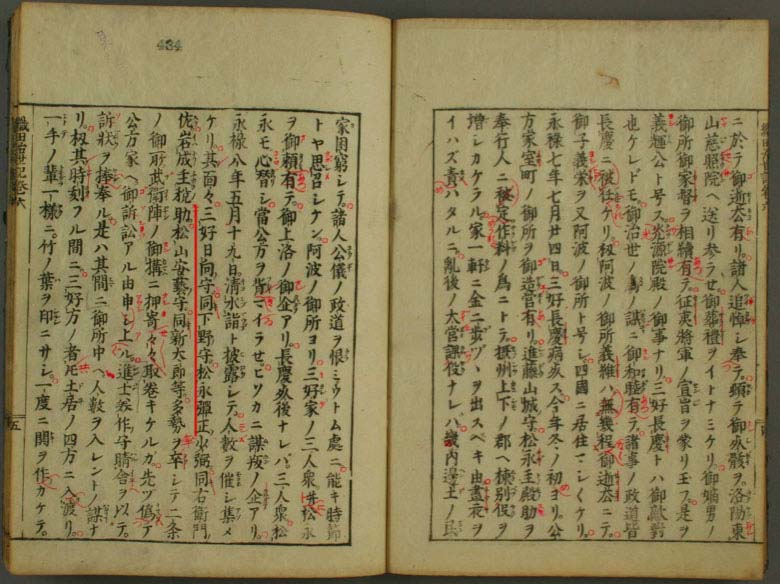 ニ於テ御逝去有リ諸人追悼シ奉テ頓テ御死骸ヲ洛陽東
山慈照院ヘ送リ参ラせ御葬禮ヲイトナミケリ御嫡男ノ
御所御家督ヲ相續有テ征夷將軍ノ宣旨ヲ蒙リ玉フ是ヲ
義輝公ト号ス光源院殿ノ御事ナリ三好長慶トハ御敵對
也ケレドモ御治世ノ為ノ謀ニ御和睦有テ諸事ノ政道皆
長慶ニ被仕ケリ扨阿波ノ御所義維ハ無幾程御逝去ニテ
御子義栄ヲ又阿波ノ御所ト号シ四國ニ居住マシ〱ケリ
永禄七年七月廿四日三好長慶病死ス今年冬ノ初ヨリ公
方家室町ノ御所ヲ御造営有リ進藤山城守松永主殿助ヲ
奉行人ニ被定作料ノ為ニトテ攝州上下ノ郡ヘ棟別役ヲ
増シカケラル家一軒ニ金二歩ヅヽヲ出スベキ由晝夜ヲ
イハズ責ハタルニ乱後ノ大営課役ナレハ畿内邊土ノ民
家困窮シテ諸人公儀ノ政道ヲ恨ミウトム處ニ能キ時節
トヤ思召シケン阿波ノ御所ヨリ三好家ノ三人衆并松永
ヲ御頼有テ御上洛ノ御企アリ長慶死後ナレバ三人衆松
永モ心替シ當公方ヲ背マイラせヒソカニ謀叛ノ企アリ
永禄八年五月十九日清水詣ト披露シテ人數ヲ催シ集メ
ケリ其面々三好日向守同下野守松永彈正少弼同右衛門
佐岩成主税助松山安藝守同新太郎等多勢ヲ卒シテ二条
ノ御所武衛陣ノ御搆ニ押寄々々取巻キケルカ先ヅ偽テ
公方家ヘ御訴訟アル由申シ上ル進士美作守晴舎ヲ以テ
訴状ヲ捧奉ル是ハ其間ニ御所中ヘ人數ヲ入レントノ謀ナ
リ扨其時刻フル間ニ三好方ノ者𪜈土居ノ四方ニ入渡リ
一手ノ軰一様ニ竹ノ葉ヲ印ニサシ一度ニ鬨ヲ作カケテ
織田治世記巻六
五
434